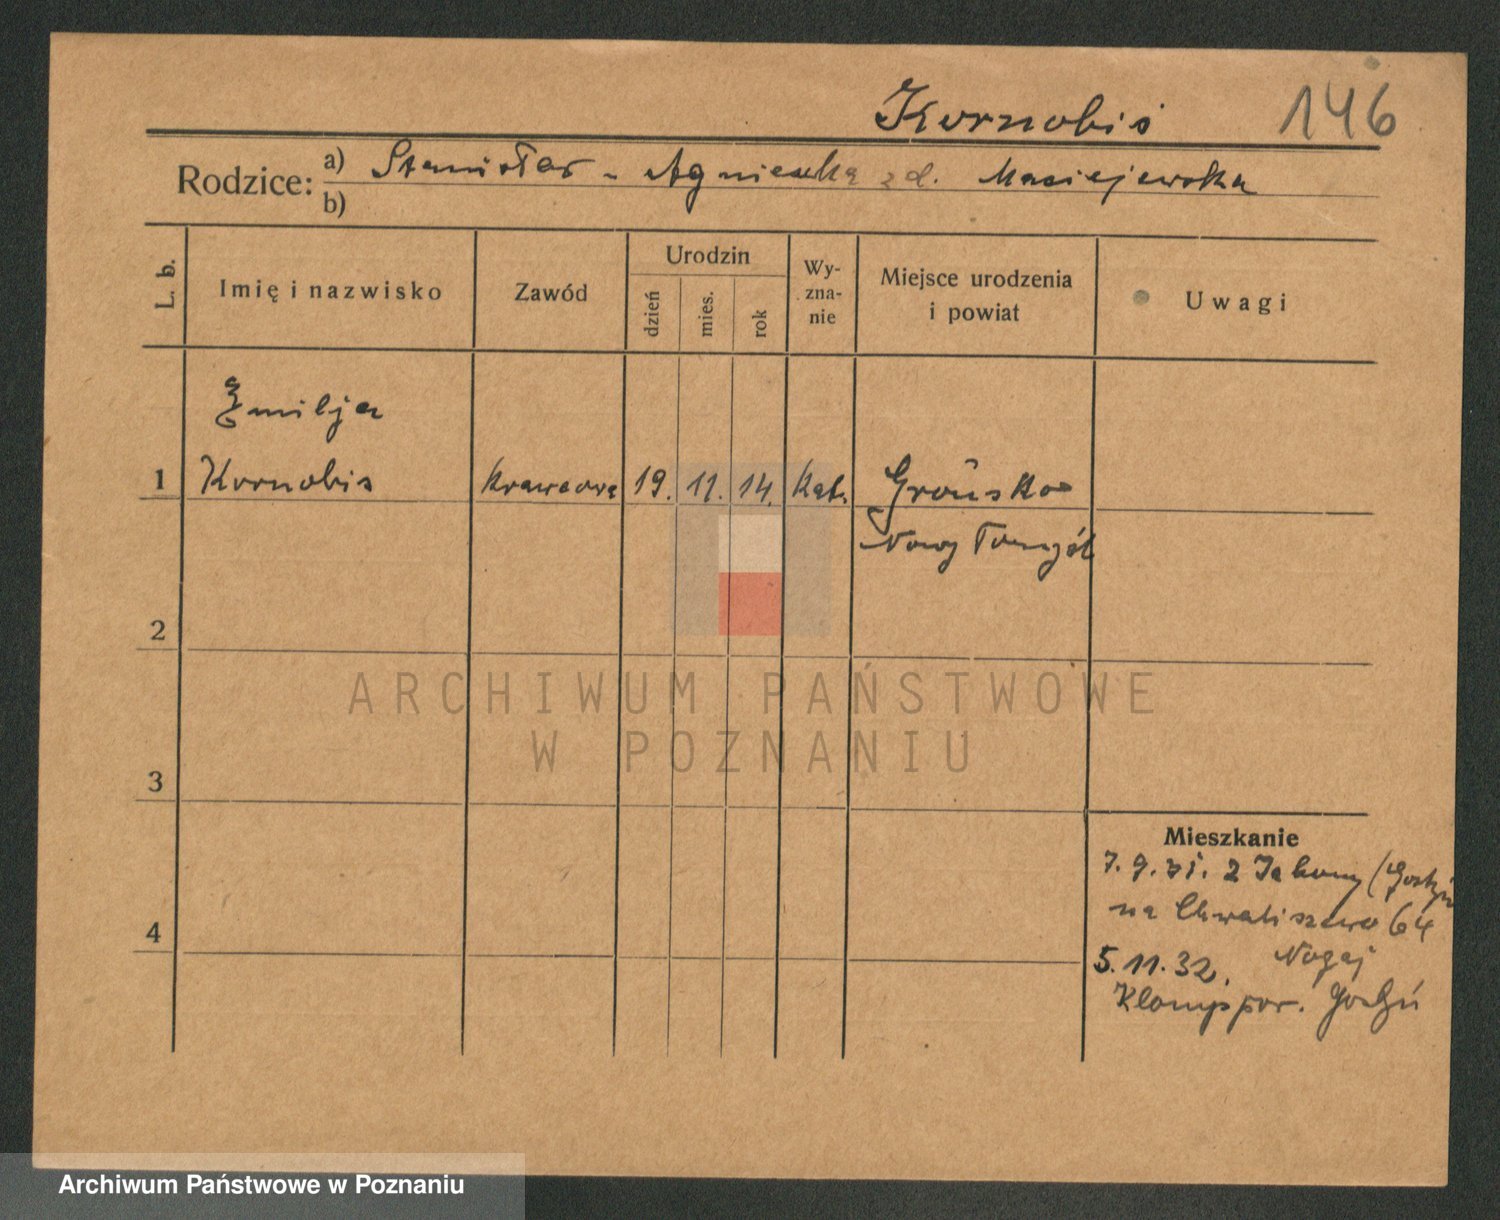 Kornobis
146
Rodzice: a) Stanisław - Agnieszka zd. Maciejewska
b)
L. b.
Imię i nazwisko
Zawód
Urodzin
dzień
mies.
rok
Wy-
zna-
nie
Miejsce urodzenia
i powiat
Uwagi
Emilja
1 Kornobis Krawcowa 19. 11. 14. Kat. Grońsko
Nowy Tomyśl
2
ARCHIWUM PAŃSTWOWE
W POZNANIU
3
Mieszkanie
7.9.31. z
na Chwaliszewo 64
4
5.11.32. Nogaj
Archiwum Państwowe w Poznaniu